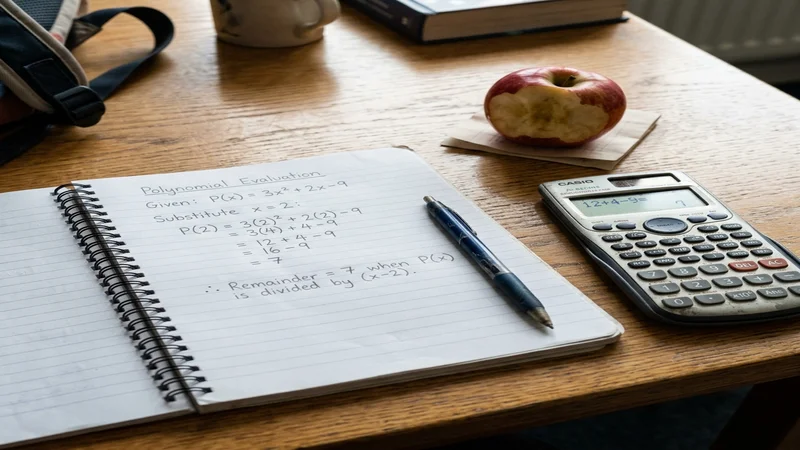 Polynomial Evaluation
Given: P(x) = 3x² + 2x - 9
Substitute x = 2:
P(2) = 3(2)² + 2(2) - 9
= 3(4) + 4 - 9
= 12 + 4 - 9
= 16 - 9
= 7
∴ Remainder = 7 when P(x)
is divided by (x-2).
CASIO
DEL
AC